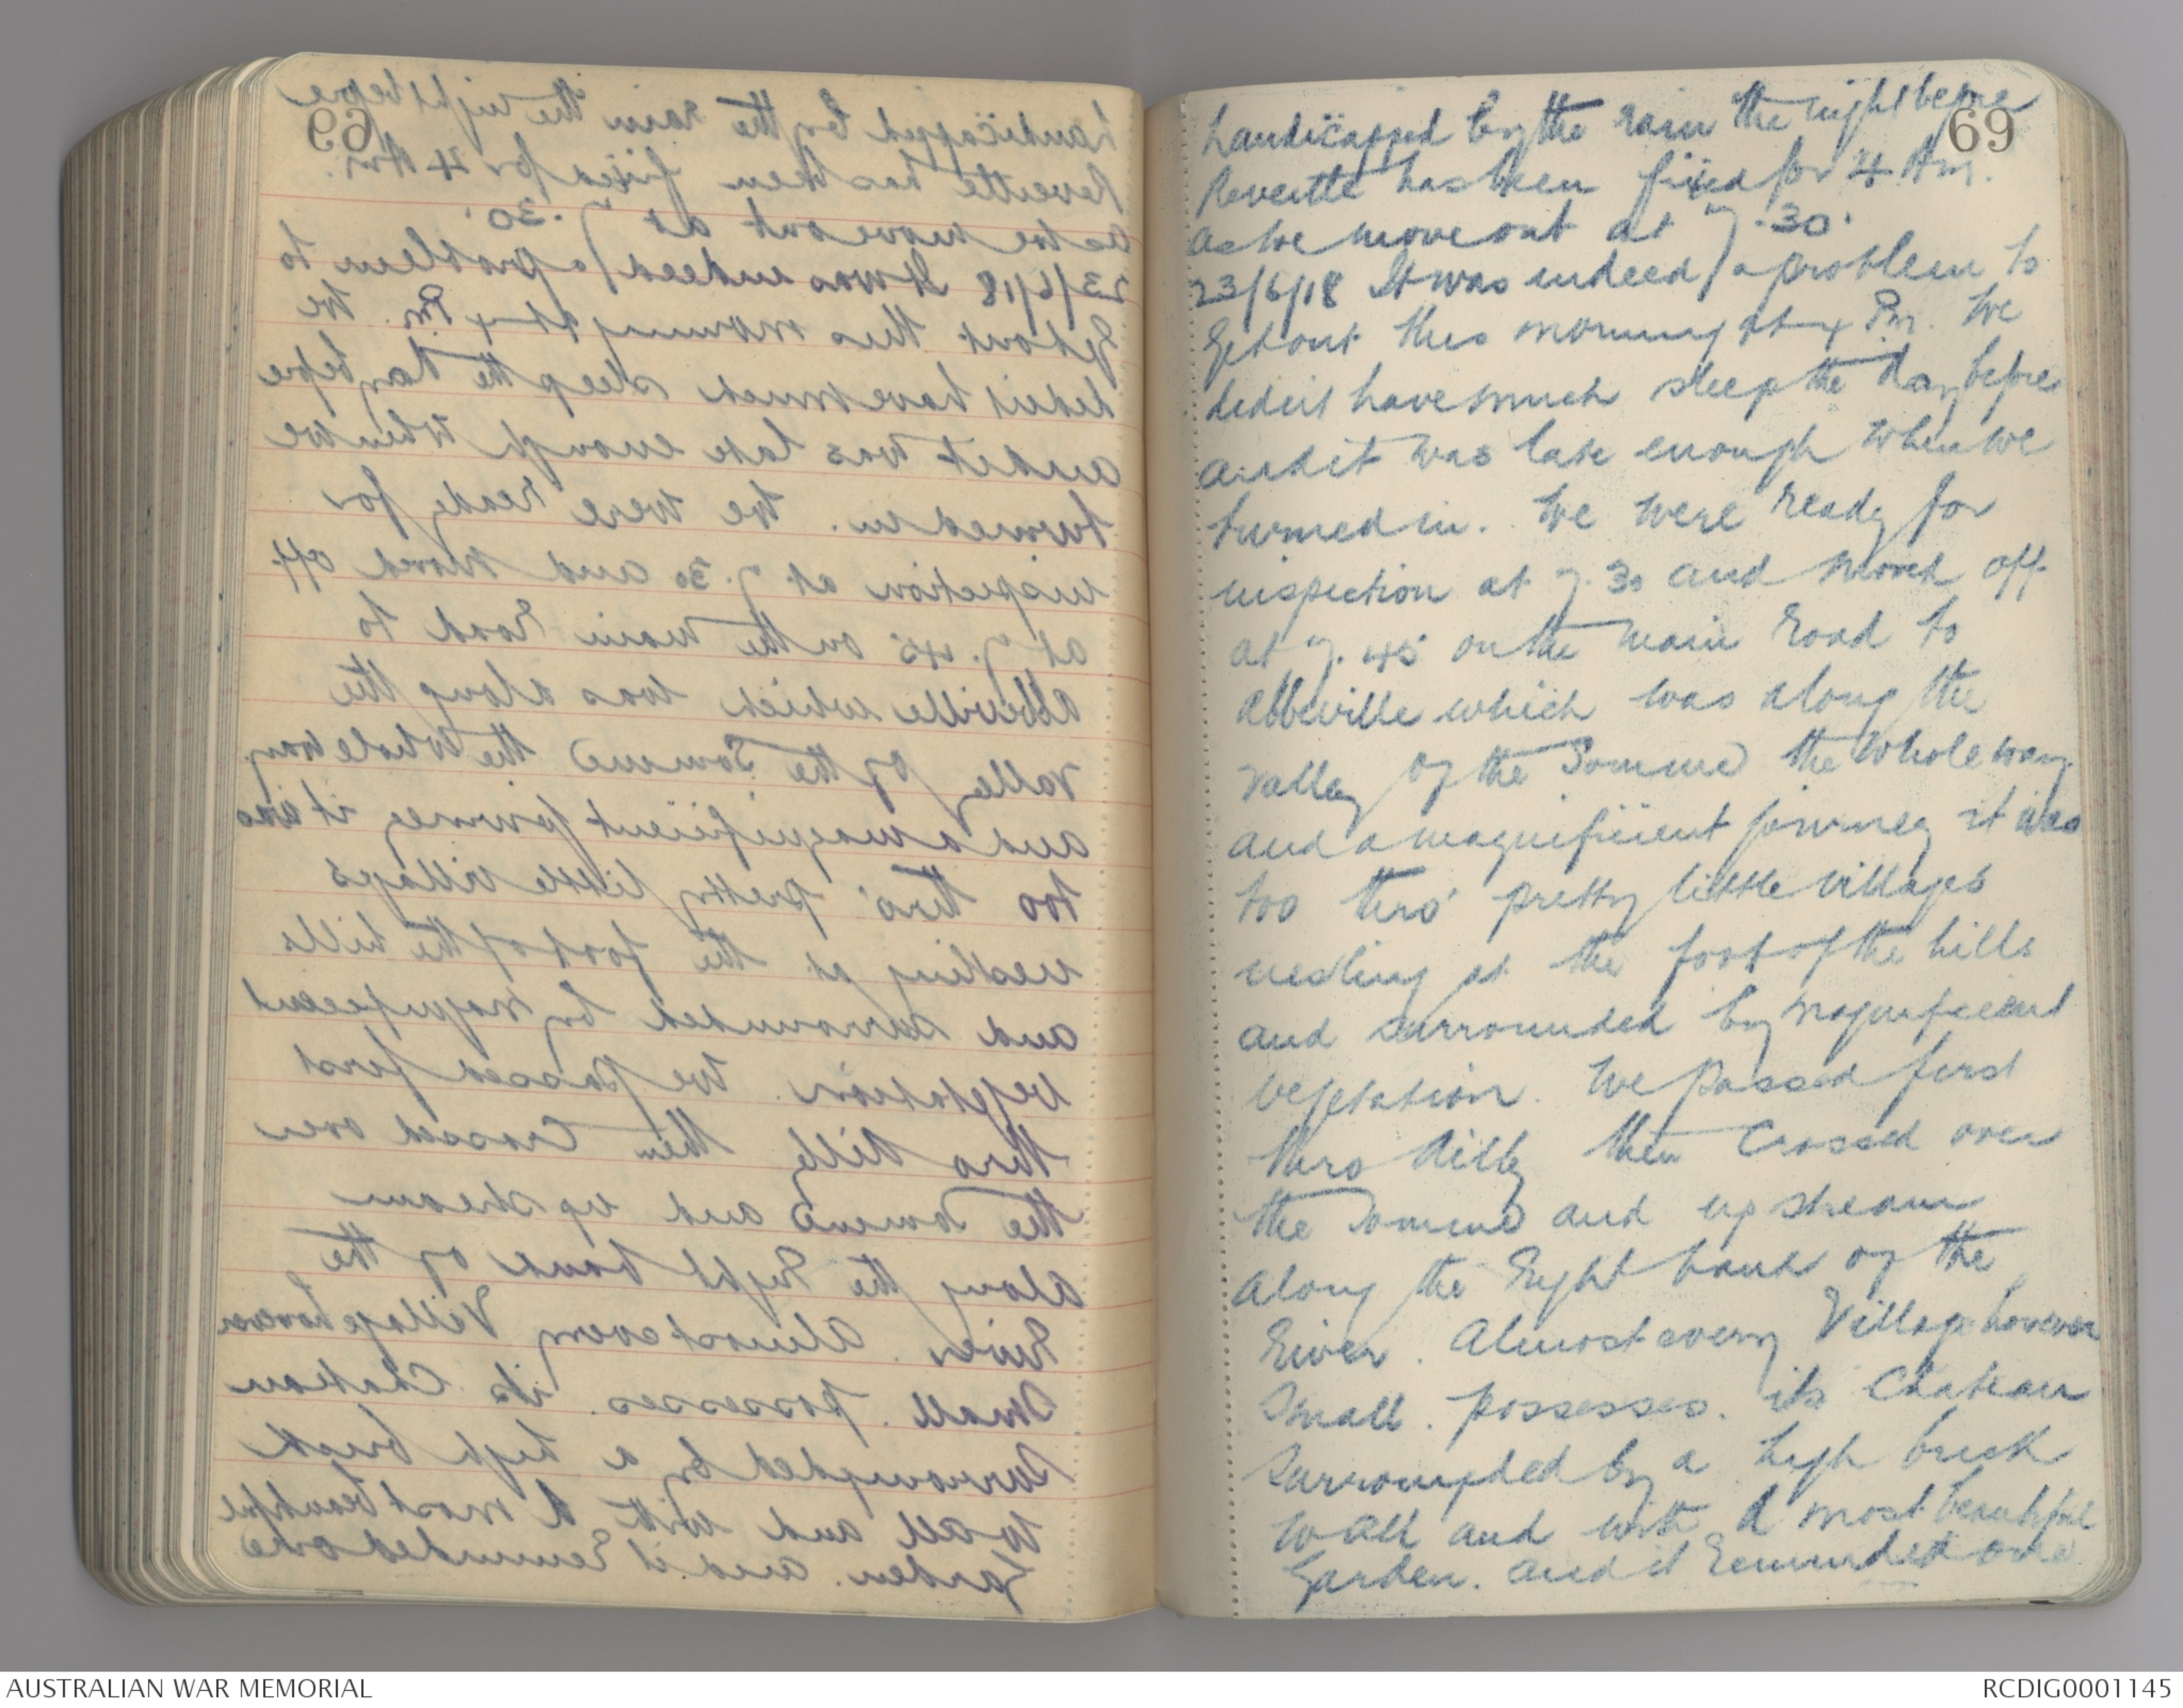 69
handicapped by the rain the night before
Reveille has been fixed for 4 Am.
as we move out at 7.30.
23/6/18 It was indeed a problem to
get out this morning at 4 Pm. We
didnt have much sleep the day before
and it was late enough when we
turned in. We were ready for
inspection at 7.30 and moved off
at 7.45 on the main road to
Abbeville which was along the
valley of the Somme the whole way.
and a magnificient journey it was
too thro' pretty little villages
nestling at the foot of the hills
and surrounded by magnificent
vegetation. We passed first
thro Ailly then crossed over
the Somme and up stream
along the right bank of the
River. Almost every Village however
small. possesses. its Chateau
surrounded by a high brick
wall and with a most beautiful
Garden. and it reminded one
AUSTRALIAN WAR MEMORIAL
RCDIG0001145